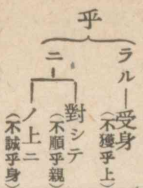 乎
ラル—受身（不獲乎上）
ニ
對シテ（不順乎親）
ノ上ニ（不誠乎身）